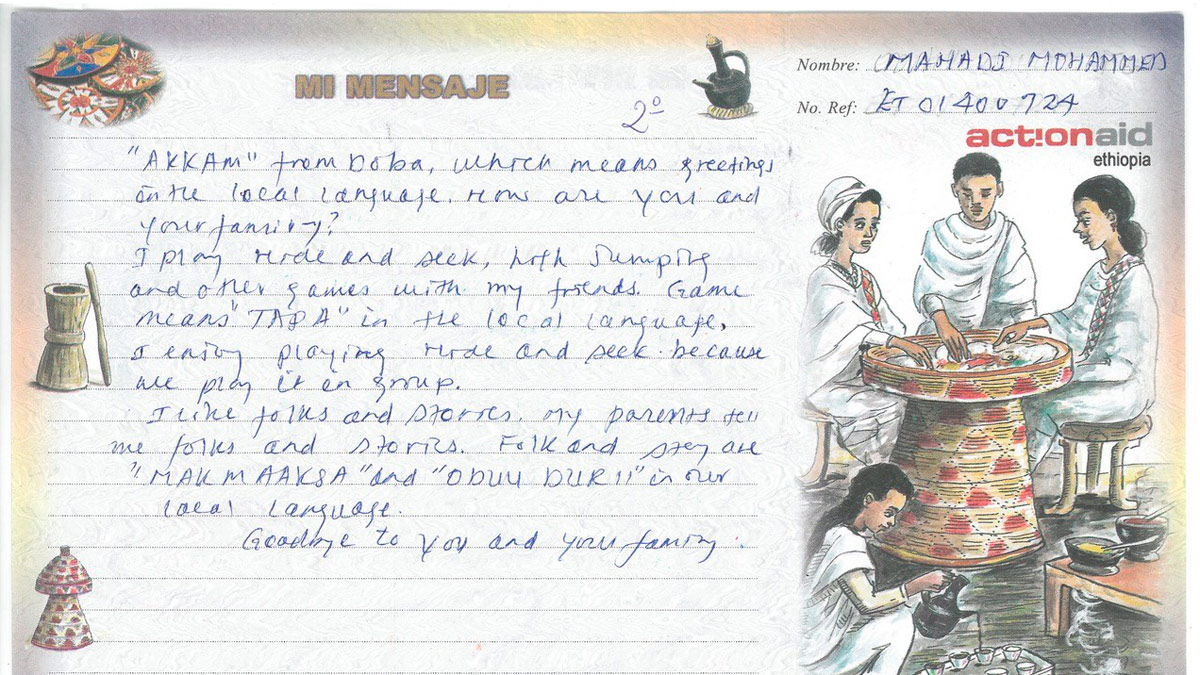 MI MENSAJE
2º
Nombre: MAHADI MOHAMMED
No. Ref: ET 01400724
act!onaid
ethiopia
"AKKAM" from Doba, which means greetings
in the local language. How are you and
your family?
I play Hide and seek, high Jumping
and other games with my friends. Game
means "TAPA" in the local language.
I enjoy playing Hide and seek because
we play it in group.
I like folks and stories. My parents tell
me folks and stories. Folk and story are
"MAKMAAKSA" and "ODUU DURII" in our
local language.
Goodbye to you and your family.